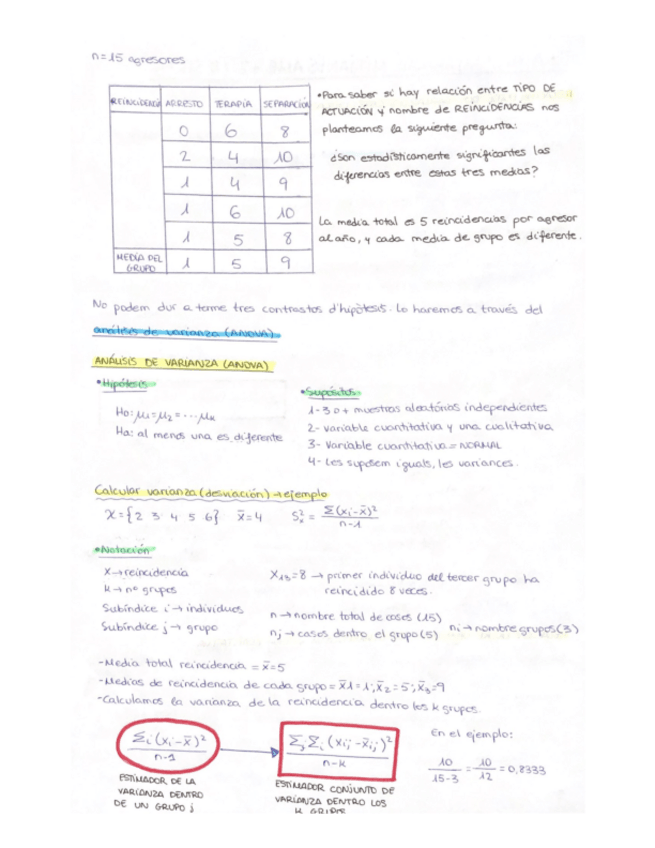 n=15 agresores
REINCIDENCIA ARRESTO TERAPIA SEPARACIÓN
0 6 8
2 4 10
1 4 9
1 6 10
1 5 8
MEDIA DEL GRUPO 1 5 9
•Para saber si hay relación entre TIPO DE
ACTUACIÓN y nombre de REINCIDENCIAS nos
planteamos la siguiente pregunta:
¿Son estadísticamente significantes las
diferencias entre estas tres medias?
La media total es 5 reincidencias por agresor
al año, y cada media de grupo es diferente.
No podem dur a terme tres contrastos d'hipòtesis. Lo haremos a través del
análisis de varianza (ANOVA).
ANÁLISIS DE VARIANZA (ANOVA)
•Hipótesis
Ho: μ1=μ2=...μk
Ha: al menos una es diferente
•Supósitos
1- 3 o + muestras aleatórias independientes
2- variable cuantitativa y una cualitativa
3- Variable cuantitativa = NORMAL
4- Les suposem iguals, les variances.
Calcular varianza (desviación) → ejemplo
X={2 3 4 5 6} x̄=4 S²ₓ = Σ(xᵢ-x̄)² / n-1
•Notación
X→reincidencia
k→nº grupos
Subíndice i→individuos
Subíndice j→grupo
X₁₃=8 → primer individuo del tercer grupo ha
reincidido 8 veces.
n→nombre total de casos (15)
nj→casos dentro el grupo (5)
ni→nombre grupos (3)
-Media total reincidencia = x̄=5
-Medias de reincidencia de cada grupo = x̄1=1; x̄2=5; x̄3=9
-Calculamos la varianza de la reincidencia dentro los k grupos.
Σᵢ(xᵢ-x̄)² / n-1
ESTIMADOR DE LA
VARIANZA DENTRO
DE UN GRUPO j
Σⱼ Σᵢ (xᵢⱼ-x̄ᵢⱼ)² / n-k
ESTIMADOR CONJUNTO DE
VARIANZA DENTRO LOS
K GRUPOS
En el ejemplo:
10 / 15-3 = 10 / 12 = 0,8333